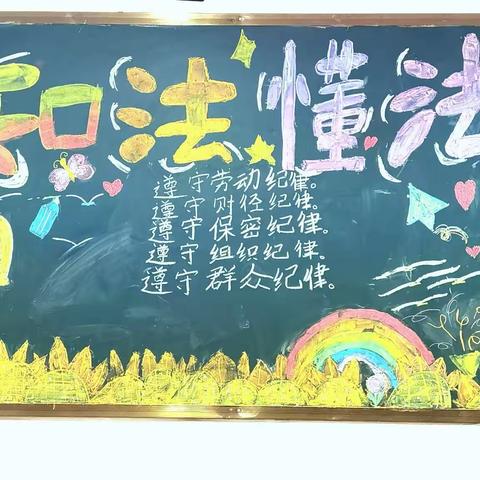 知法懂法
遵守劳动纪律。
遵守财经纪律。
遵守保密纪律。
遵守组织纪律。
遵守群众纪律。